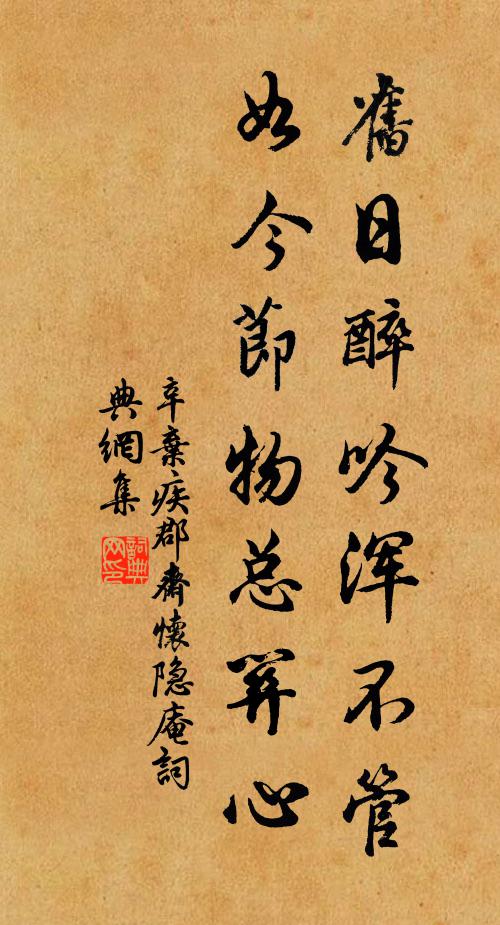 舊日醉吟渾不管
如今節物总關心
辛棄疾郡齋懷隐庵詞
典網集
詞典網印